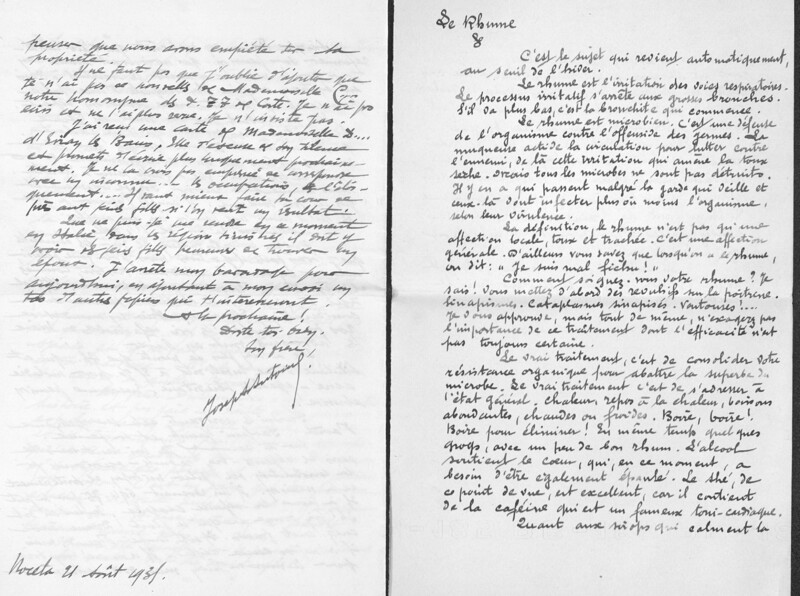 penser que nous avons empiété sur sa
propriété.
Il ne faut pas que j'oublie d'ajouter que
je n'ai pas de nouvelles de Mademoiselle C...
notre homonyme de Corte. Je n'ai pas
écris et ne l'ai plus revue. Je n'insiste pas.
J'ai reçu une carte de Mademoiselle B....
les Bains, Elle s'excuse de son silence
et promets d'écrire plus longuement prochaine-
ment. Je ne la crois pas
avec un inconnu...
vaut mieux faire la cour de
Que ne puis-je me rendre en ce moment
en Italie dans les régions il doit y
avoir de jeunes filles heureuses de trouver un
époux. J'arrête mon bavardage pour
aujourd'hui, en ajoutant à mon envoi un
tas d'autres papiers qui t'intéresseront.
A la prochaine!
Porte toi bien.
Ton frère!
Noceta 21 Août 1931.
Le Rhume
C'est le sujet qui revient automatiquement,
au seuil de l'hiver.
Le rhume est l'irritation des voies respiratoires.
Le processus irritatif s'arrête aux grosses bronches.
S'il va plus bas, c'est la bronchite qui commence.
Le rhume est microbien. C'est une défense
de l'organisme contre l'offensive des germes. Le
muqueuse active la circulation pour lutter contre
l'ennemi, de là cette irritation qui amène la toux
sèche. Mais tous les microbes ne sont pas détruits.
Il y en a qui passent malgré la garde qui veille et
ceux-là vont infecter plus ou moins l'organisme,
selon leur virulence.
La définition, le rhume n'est pas qu'une
affection locale, toux et trachée. C'est une affection
générale. D'ailleurs vous savez que lorsqu'on a le rhume,
on dit: "Je suis mal fichu!"
Comment soignez-vous votre rhume? Je
sais! Vous mettez d'abord des révulsifs sur la poitrine.
Sinapismes. Cataplasmes sinapisés. Ventouses....
Je vous approuve, mais tout de même, n'exagérez pas
l'importance de ce traitement dont l'efficacité n'est
pas toujours certaine.
Le vrai traitement, c'est de consolider votre
résistance organique pour abattre la superbe du
microbe. Le vrai traitement c'est de s'adresser à
l'état général. Chaleur, repos à la chaleur, boissons
abondantes, chaudes ou froides. Boire, boire!
Boire pour éliminer! En même temps quelques
grogs, avec un peu de bon rhum. L'alcool
soutient le cœur, qui, en ce moment, a
besoin d'être également épaulé. Le thé, de
ce point de vue, est excellent, car il contient
de la caféine qui est un fameux toni-cardiaque.
Quant aux sirops qui calment la